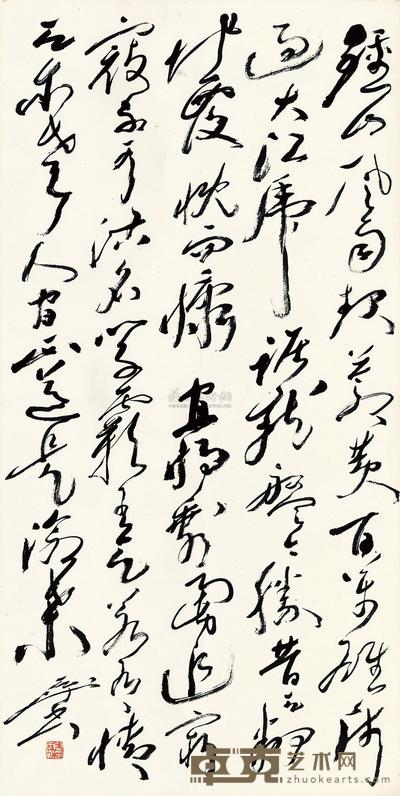 鍾山風雨起蒼黄百万雄師
過大江虎踞龍盤今勝昔天翻
地覆慨而慷宜將剩勇追窮
寇不可沽名學霸王天若有情
天亦老人間正道是滄桑
卓克艺术网
zhuokearts.com